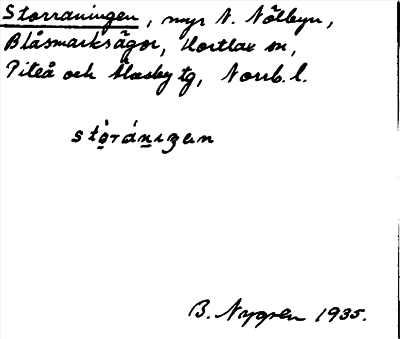 Storraningen, myr N. Nötbyn,
Blåsmarksägor, Hortlax sn,
Piteå och Älvsby tg, Norrb. l.
stòránizen
B. Nygren 1935.